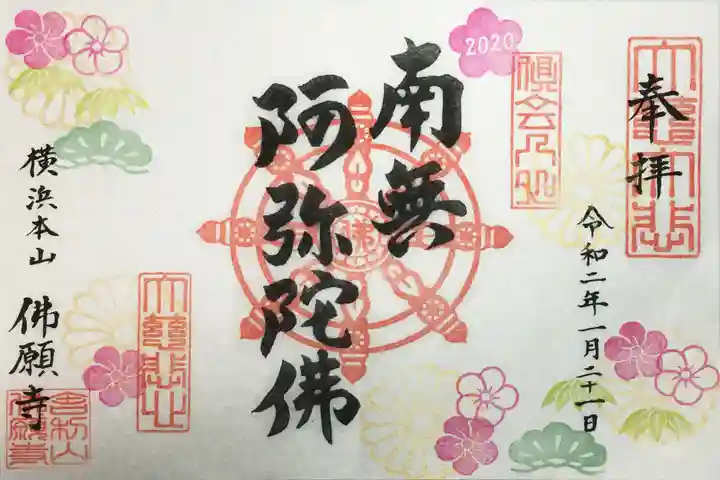 奉拝
令和二年一月二十一日
2020
倶会一処
南無
阿弥陀佛
佛
横浜本山 佛願寺